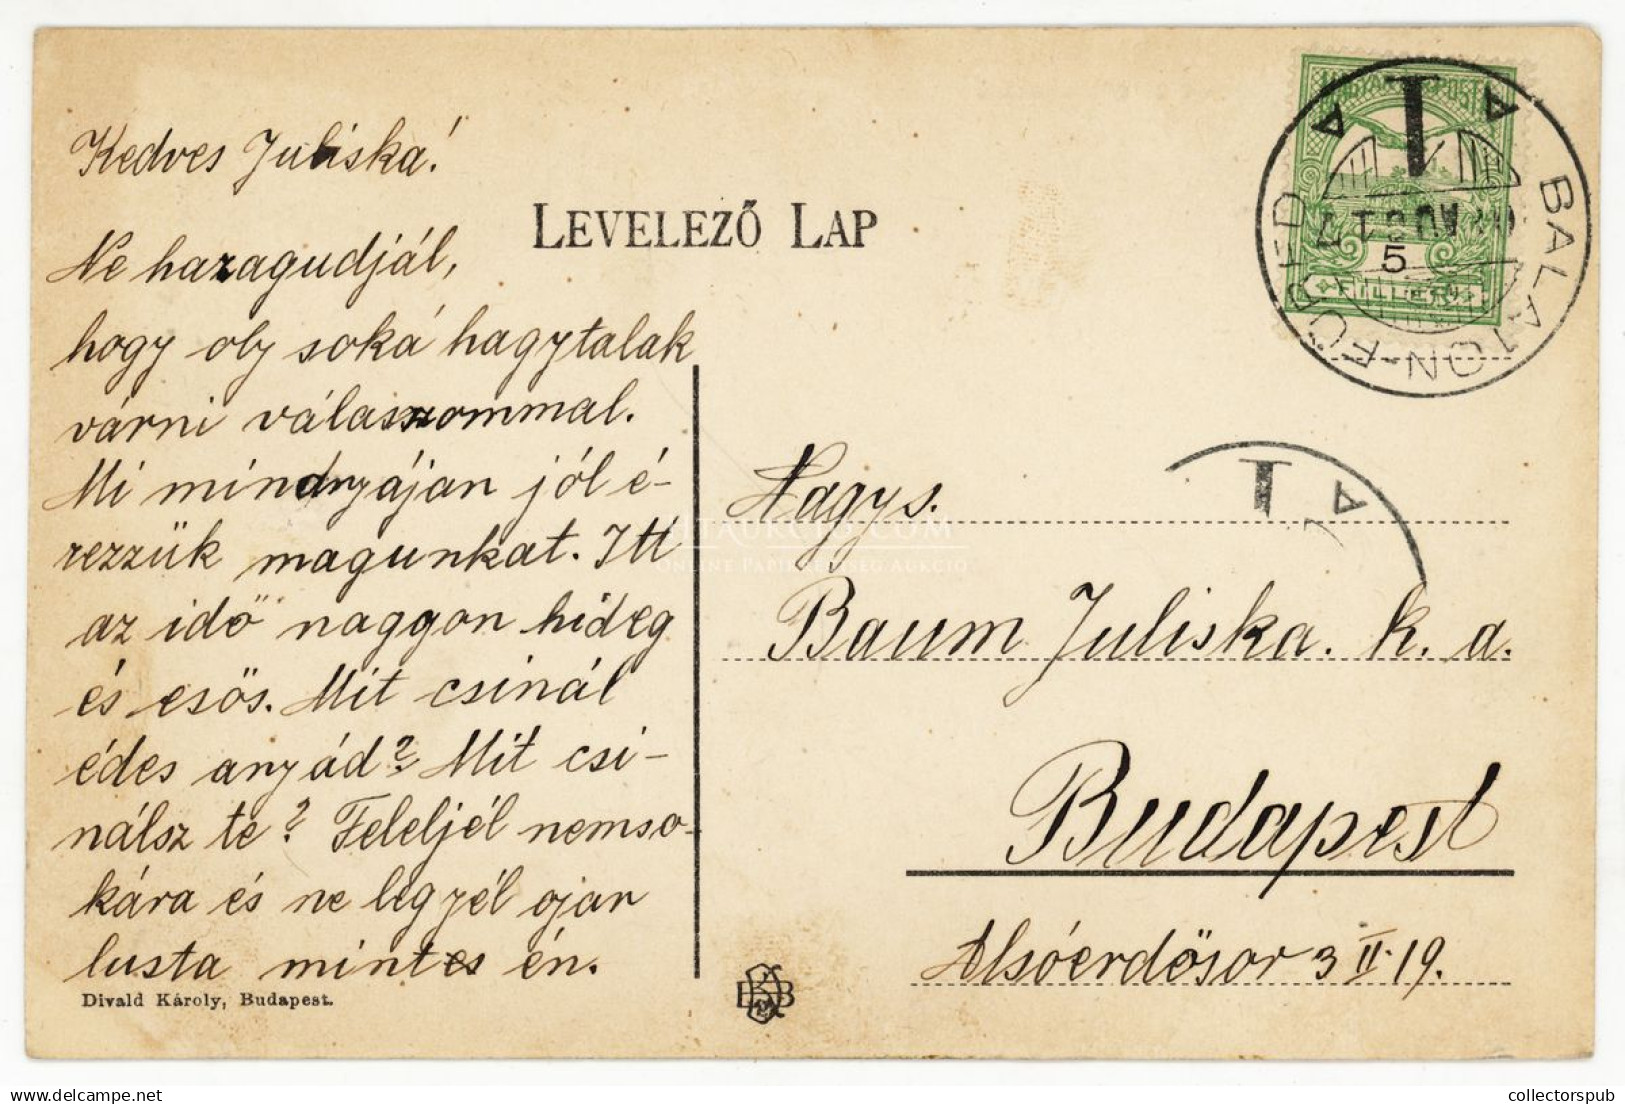 Kedves Juliska!
Ne haragudjál,
hogy oly soká hagytalak
várni válaszommal.
Mi mindnyájan jól é-
rezzük magunkat. Itt
az idő naggon hideg
és esős. Mit csinál
édes anyád? Mit csi-
nálsz te? Feleljél nemso-
kára és ne légyél ojan
lusta mint én.
Divald Károly, Budapest.
LEVELEZŐ LAP
MAGYAR KIR. POSTA
5
FILLÉR
T
BALATON-FÜRED
AUG 17
T
Nagys.
Baum Juliska. k. a.
Budapest
Alsóerdősor 3 II. 19.
ONLINE PAPÍRRÉGISÉG AUKCIÓ
collectorspub